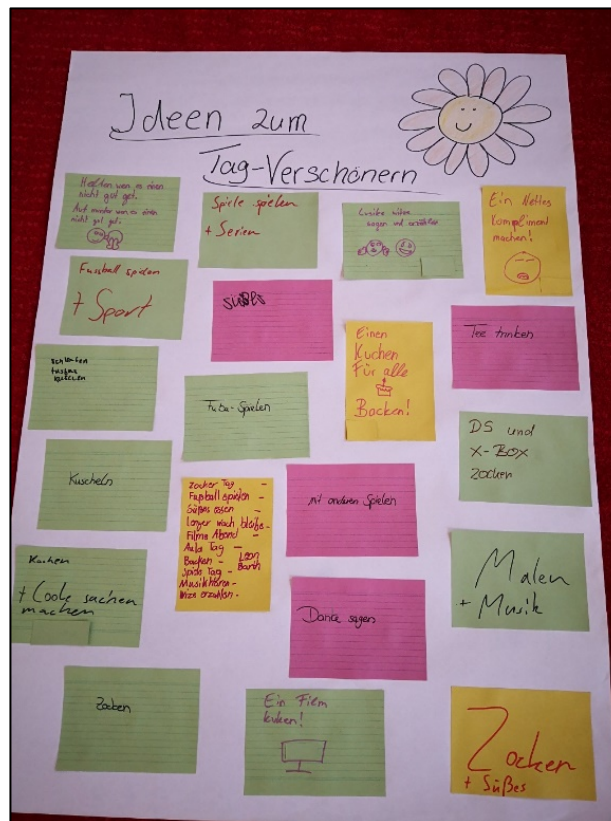 Ideen zum
Tag-Verschönern
Helfen wen es einen
nicht gut get.
Auf munter wen es einen
nicht gut get.
Spiele spielen
+ Serien
witze
sagen und erzählen
Ein Nettes
Kompliment
machen!
Fussball spielen
+ Sport
süßes
Einen
Kuchen
Für alle
Backen!
Tee trinken
schlafen
kuscheln
Spielen
DS und
X-BOX
zocken
Kuscheln
Zocker Tag -
Fußball spielen -
Süßes essen -
Langer wach bleibe -
Filme Abend -
Aula Tag -
Backen -
Leon
Spiele Tag -
Barin
Musik hören -
Wize erzählen -
mit anderen Spielen
Kuchen
+ Coole sachen
machen
Dance sagen
Malen
+ Musik
Zocken
Ein Film
kuken!
Zocken
+ Süßes